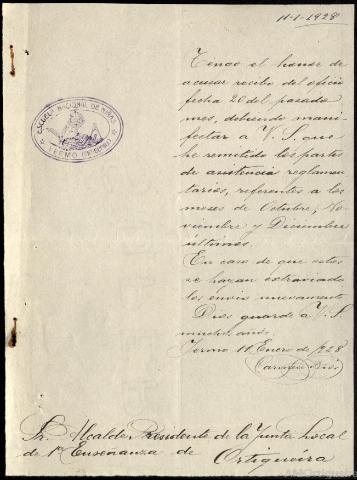 11-1-1928
Tengo el honor de
acusar recibo del oficio
fecha 20 del pasado
mes, debiendo mani-
fectar a V. S. que
he remitido los partes
de asistencia reglamen-
tarios, referentes a los
meses de Octubre, No-
viembre y Diciembre
últimos.
En caso de que estos
se hayan extraviado
los envio nuevamente
Dios guarde a V. S.
muchs. años.
Yermo 11 Enero de 1928
ESCUELA NACIONAL DE NIÑAS
YERMO
Sr. Alcalde Presidente de la Junta Local
de 1ª Enseñanza de Ortigueira